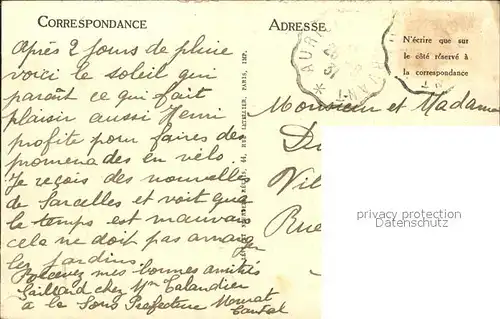 CORRESPONDANCE
ADRESSE
Après 2 jours de pluie
voici le soleil qui
paraît ce qui fait
plaisir aussi Henri
profite pour faires des
promenades en vélo.
Je reçois des nouvelles
de Sarcelles et voit que
le temps est mauvais
cela ne doit pas arranger
les jardins.
Recevez mes bonnes amitiés
Gaillard chez Mm Talandier
a la Sous Prefecture Murat
Cantal
RUE LETELLIER, PARIS, IMP.
AURI
N'écrire que sur
le côté réservé à
la correspondance
Monsieur et Madame
Vil
Rue
privacy protection
oldthing.com